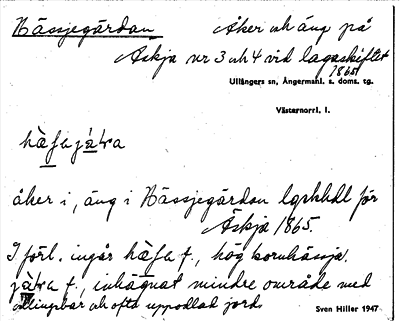 Hässjegärdan Åker och äng på
Äskja nr 3 och 4 vid lagaskiftet
1865
Ullångers sn, Ångermanl. s. doms. tg.
Västernorrl. l.
åker i, äng i Hässjegärdan lgskhdl för
Äskja 1865.
I förl. ingår f., hög kornhässja.
f., inhägnat mindre område med
och ofta uppodlad jord.
Sven Hiller 1947